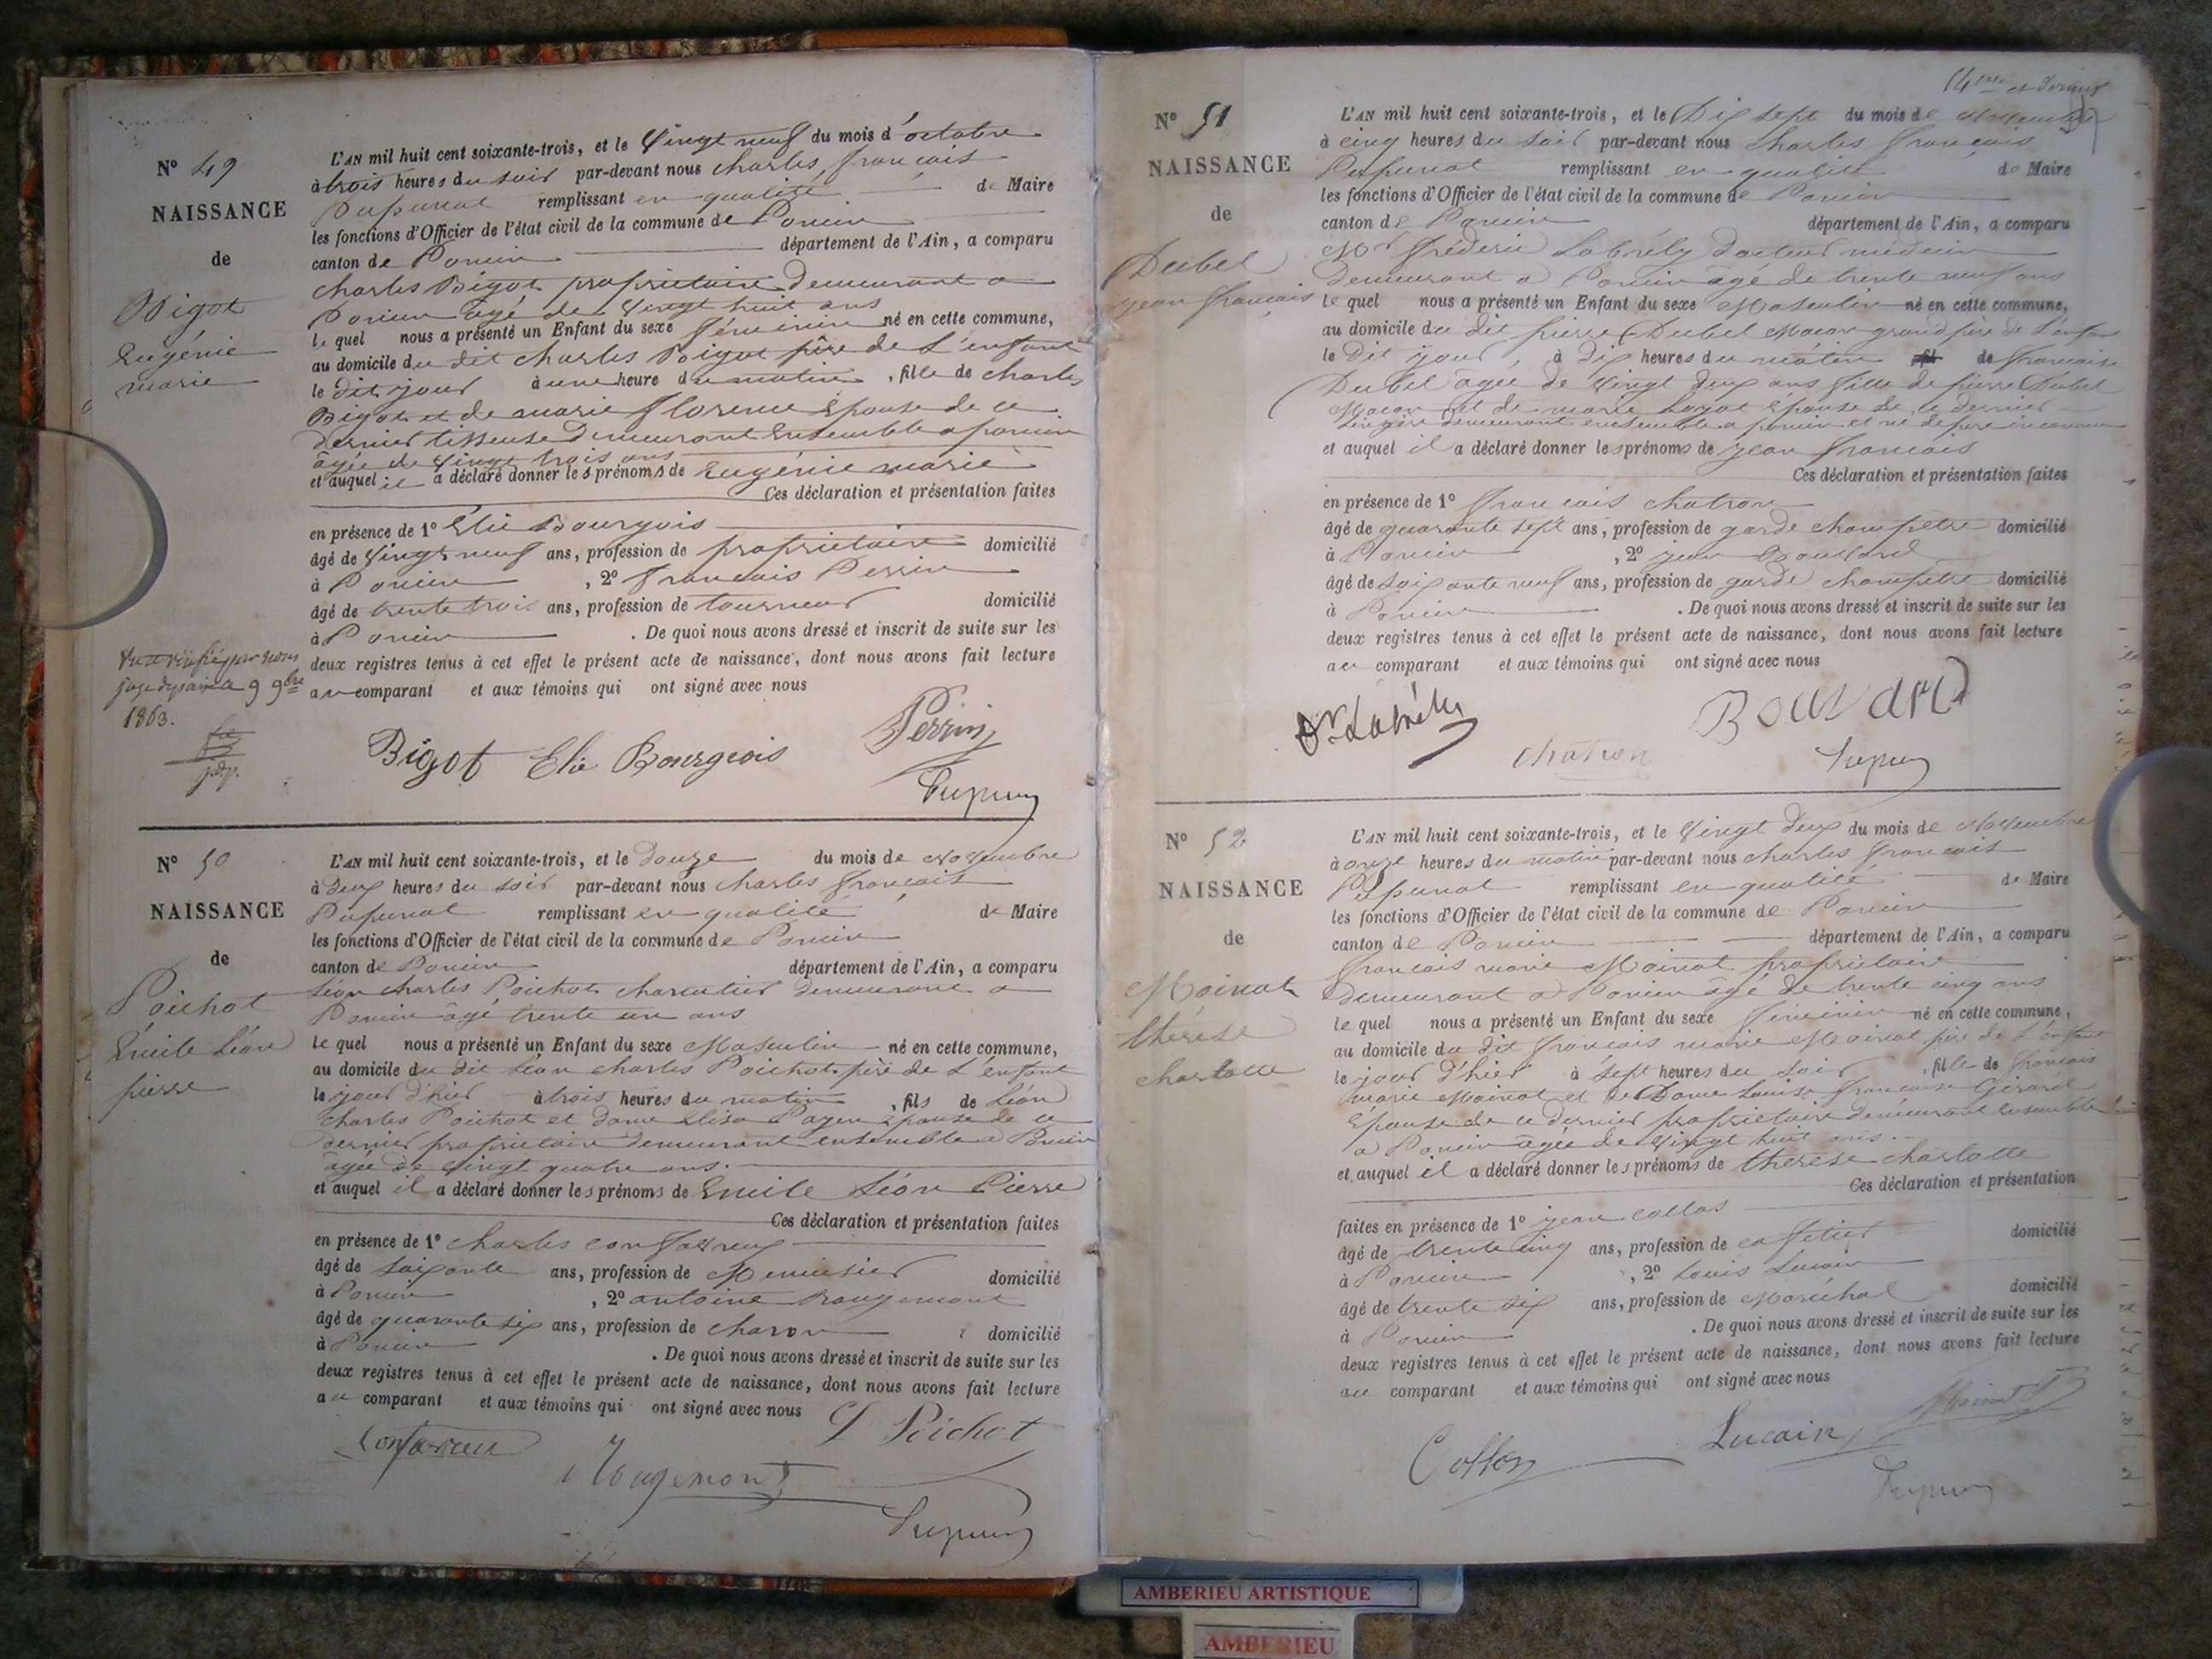 N° 49
NAISSANCE
de
Bigot
Eugénie
marie
L'AN mil huit cent soixante-trois, et le Vingt neuf du mois d'octobre
à trois heures du soir par-devant nous charles françois
Pupunat remplissant en qualité de Maire
les fonctions d'Officier de l'état civil de la commune de Poncin
canton de Poncin département de l'Ain, a comparu
charles Bigot propriétaire demeurant a
Poncin agé de Vingt huit ans
le quel nous a présenté un Enfant du sexe féminin né en cette commune,
au domicile du dit charles Bigot père de L'enfant
le dit jour à une heure du matin, fille de charles
Bigot et de marie florence épouse de ce
dernier tisseuse demeurant Ensemble a poncin
âgée de Vingt trois ans
et auquel il a déclaré donner les prénoms de Eugénie marie
Ces déclaration et présentation faites
en présence de 1° Elie Bourgois
âgé de Vingt neuf ans, profession de propriétaire domicilié
à Poncin, 2° francois Perrin
âgé de trente trois ans, profession de tourneur domicilié
à Poncin. De quoi nous avons dressé et inscrit de suite sur les
deux registres tenus à cet effet le présent acte de naissance, dont nous avons fait lecture
au comparant et aux témoins qui ont signé avec nous
Vu et vérifié par nous
juge de paix le 9 9bre
1863.
j.d.p.
Bigot Elie Bourgeois Perrin
N° 50
NAISSANCE
de
Poichot
Émile Léon
pierre
L'AN mil huit cent soixante-trois, et le douze du mois de Novembre
à deux heures du soir par-devant nous charles françois
Pupunat remplissant en qualité de Maire
les fonctions d'Officier de l'état civil de la commune de Poncin
canton de Poncin département de l'Ain, a comparu
Léon charles Poichot charcutier demeurant a
Poncin âgé trente un ans
le quel nous a présenté un Enfant du sexe Masculin né en cette commune,
au domicile du dit Léon charles Poichot père de L'enfant
le jour d'hier à trois heures du matin, fils de Léon
charles Poichot et dame Elisa Payen épouse de ce
dernier propriétaire demeurant ensemble a Poncin
âgée de Vingt quatre ans.
et auquel il a déclaré donner les prénoms de Emile Léon Pierre
Ces déclaration et présentation faites
en présence de 1° charles confavreux
âgé de soixante ans, profession de Menuisier domicilié
à Poncin, 2° antoine Rougemont
âgé de quarante six ans, profession de charon domicilié
à Poncin. De quoi nous avons dressé et inscrit de suite sur les
deux registres tenus à cet effet le présent acte de naissance, dont nous avons fait lecture
au comparant et aux témoins qui ont signé avec nous
Poichot
Rougemont
N° 51
NAISSANCE
de
Dubel
jean françois
L'AN mil huit cent soixante-trois, et le Dix sept du mois de Novembre
à cinq heures du soir par-devant nous charles françois
Pupunat remplissant en qualité de Maire
les fonctions d'Officier de l'état civil de la commune de Poncin
canton de Poncin département de l'Ain, a comparu
Mr fréderic Labrély docteur médecin
demeurant a Poncin agé de trente neuf ans
le quel nous a présenté un Enfant du sexe Masculin né en cette commune,
au domicile du dit pierre Dubel Macon grand père de L'enfant
le Dit jour, à dix heures du matin fil de francoise
Dubel âgée de Vingt deux ans fille de pierre Dubel
Macon et de marie épouse de ce dernier
Lingère demeurant ensemble a poncin et né de père inconnu
et auquel il a déclaré donner les prénoms de jean francois
Ces déclaration et présentation faites
en présence de 1° francois chatron
âgé de quarante sept ans, profession de garde champêtre domicilié
à Poncin, 2° jean Bouvard
âgé de soixante neuf ans, profession de garde champêtre domicilié
à Poncin. De quoi nous avons dressé et inscrit de suite sur les
deux registres tenus à cet effet le présent acte de naissance, dont nous avons fait lecture
au comparant et aux témoins qui ont signé avec nous
Dr Labrély Bouvard
chatron
N° 52
NAISSANCE
de
Moinat
thérèse
charlotte
L'AN mil huit cent soixante-trois, et le Vingt deux du mois de Novembre
à onze heures du matin par-devant nous charles francois
Pupunat remplissant en qualité de Maire
les fonctions d'Officier de l'état civil de la commune de Poncin
canton de Poncin département de l'Ain, a comparu
francois marie Moinat propriétaire
demeurant a Poncin agé de trente cinq ans
le quel nous a présenté un Enfant du sexe féminin né en cette commune,
au domicile du dit francois marie Moinat père de L'enfant
le jour d'hier à sept heures du soir, fille de francois
marie Moinat et de Dame Louise francoise Girard
épouse de ce dernier propriétaire demeurant ensemble
a Poncin âgée de Vingt huit ans.
et auquel il a déclaré donner les prénoms de thérèse charlotte
Ces déclaration et présentation
faites en présence de 1° jean collas
âgé de trente cinq ans, profession de cafetier domicilié
à Poncin, 2° Louis Lucain
âgé de trente six ans, profession de Maréchal domicilié
à Poncin. De quoi nous avons dressé et inscrit de suite sur les
deux registres tenus à cet effet le présent acte de naissance, dont nous avons fait lecture
au comparant et aux témoins qui ont signé avec nous
Lucain
AMBERIEU ARTISTIQUE
AMBERIEU